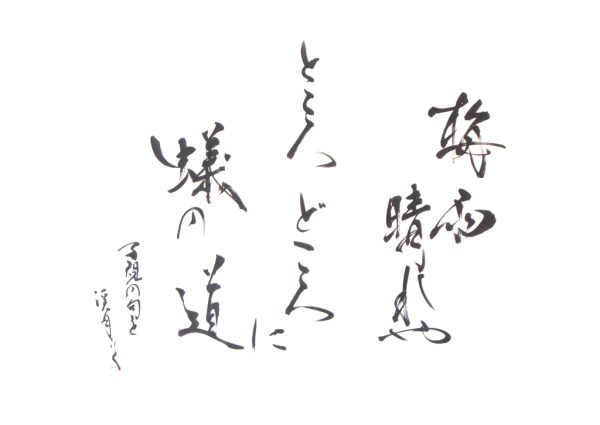 梅雨
晴れや
ところどころに
蟻の道
子規の句を
渓月かく